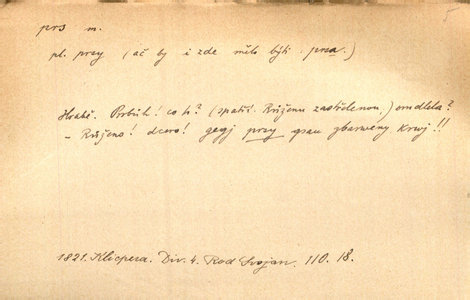 prs m.
pl. prsy (ač by i zde mělo býti prsa.)
Hrabě. Probůh! co to? (spatří Růženu zastřelenou.) omdlela?
– Růženo! dcero! gegj prsy gsau zbarweny krwj!!
1821. Klicpera. Div. 4. Rod Svojan. 110. 18.